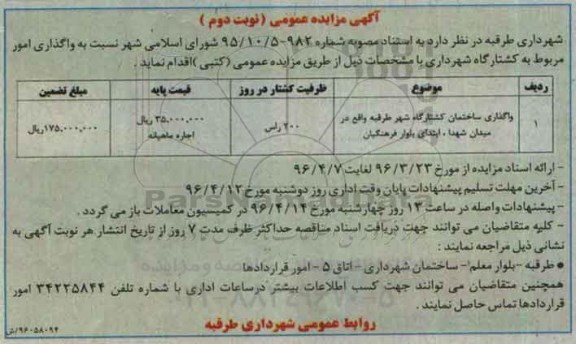 آگهی مزایده عمومی (نوبت دوم)
شهرداری طرقبه در نظر دارد به استناد مصوبه شماره ۹۸۲-۹۵/۱۰/۵ شورای اسلامی شهر نسبت به واگذاری امور
مربوط به کشتارگاه شهرداری با مشخصات ذیل از طریق مزایده عمومی (کتبی) اقدام نماید.
ردیف موضوع ظرفیت کشتار در روز قیمت پایه مبلغ تضمین
۱ واگذاری ساختمان کشتارگاه شهر طرقبه واقع در میدان شهدا، ابتدای بلوار فرهنگیان ۲۰۰ راس ۳۵,۰۰۰,۰۰۰ ریال اجاره ماهیانه ۱۷۵,۰۰۰,۰۰۰ریال
- ارائه اسناد مزایده از مورخ ۹۶/۳/۲۳ لغایت ۹۶/۴/۷
- آخرین مهلت تسلیم پیشنهادات پایان وقت اداری روز دوشنبه مورخ ۹۶/۴/۱۲
- پیشنهادات واصله در ساعت ۱۳ روز چهارشنبه مورخ ۹۶/۴/۱۴ در کمیسیون معاملات باز می گردد.
- کلیه متقاضیان می توانند جهت دریافت اسناد مناقصه حداکثر ظرف مدت ۷ روز از تاریخ انتشار هر نوبت آگهی به
نشانی ذیل مراجعه نمایند:
● طرقبه -بلوار معلم- ساختمان شهرداری - اتاق ۵ - امور قراردادها
همچنین متقاضیان می توانند جهت کسب اطلاعات بیشتر درساعات اداری با شماره تلفن ۳۴۲۲۵۸۴۴ امور
قراردادها تماس حاصل نمایند.
روابط عمومی شهرداری طرقبه
۹۶۰۵۸۰۹۴/ش